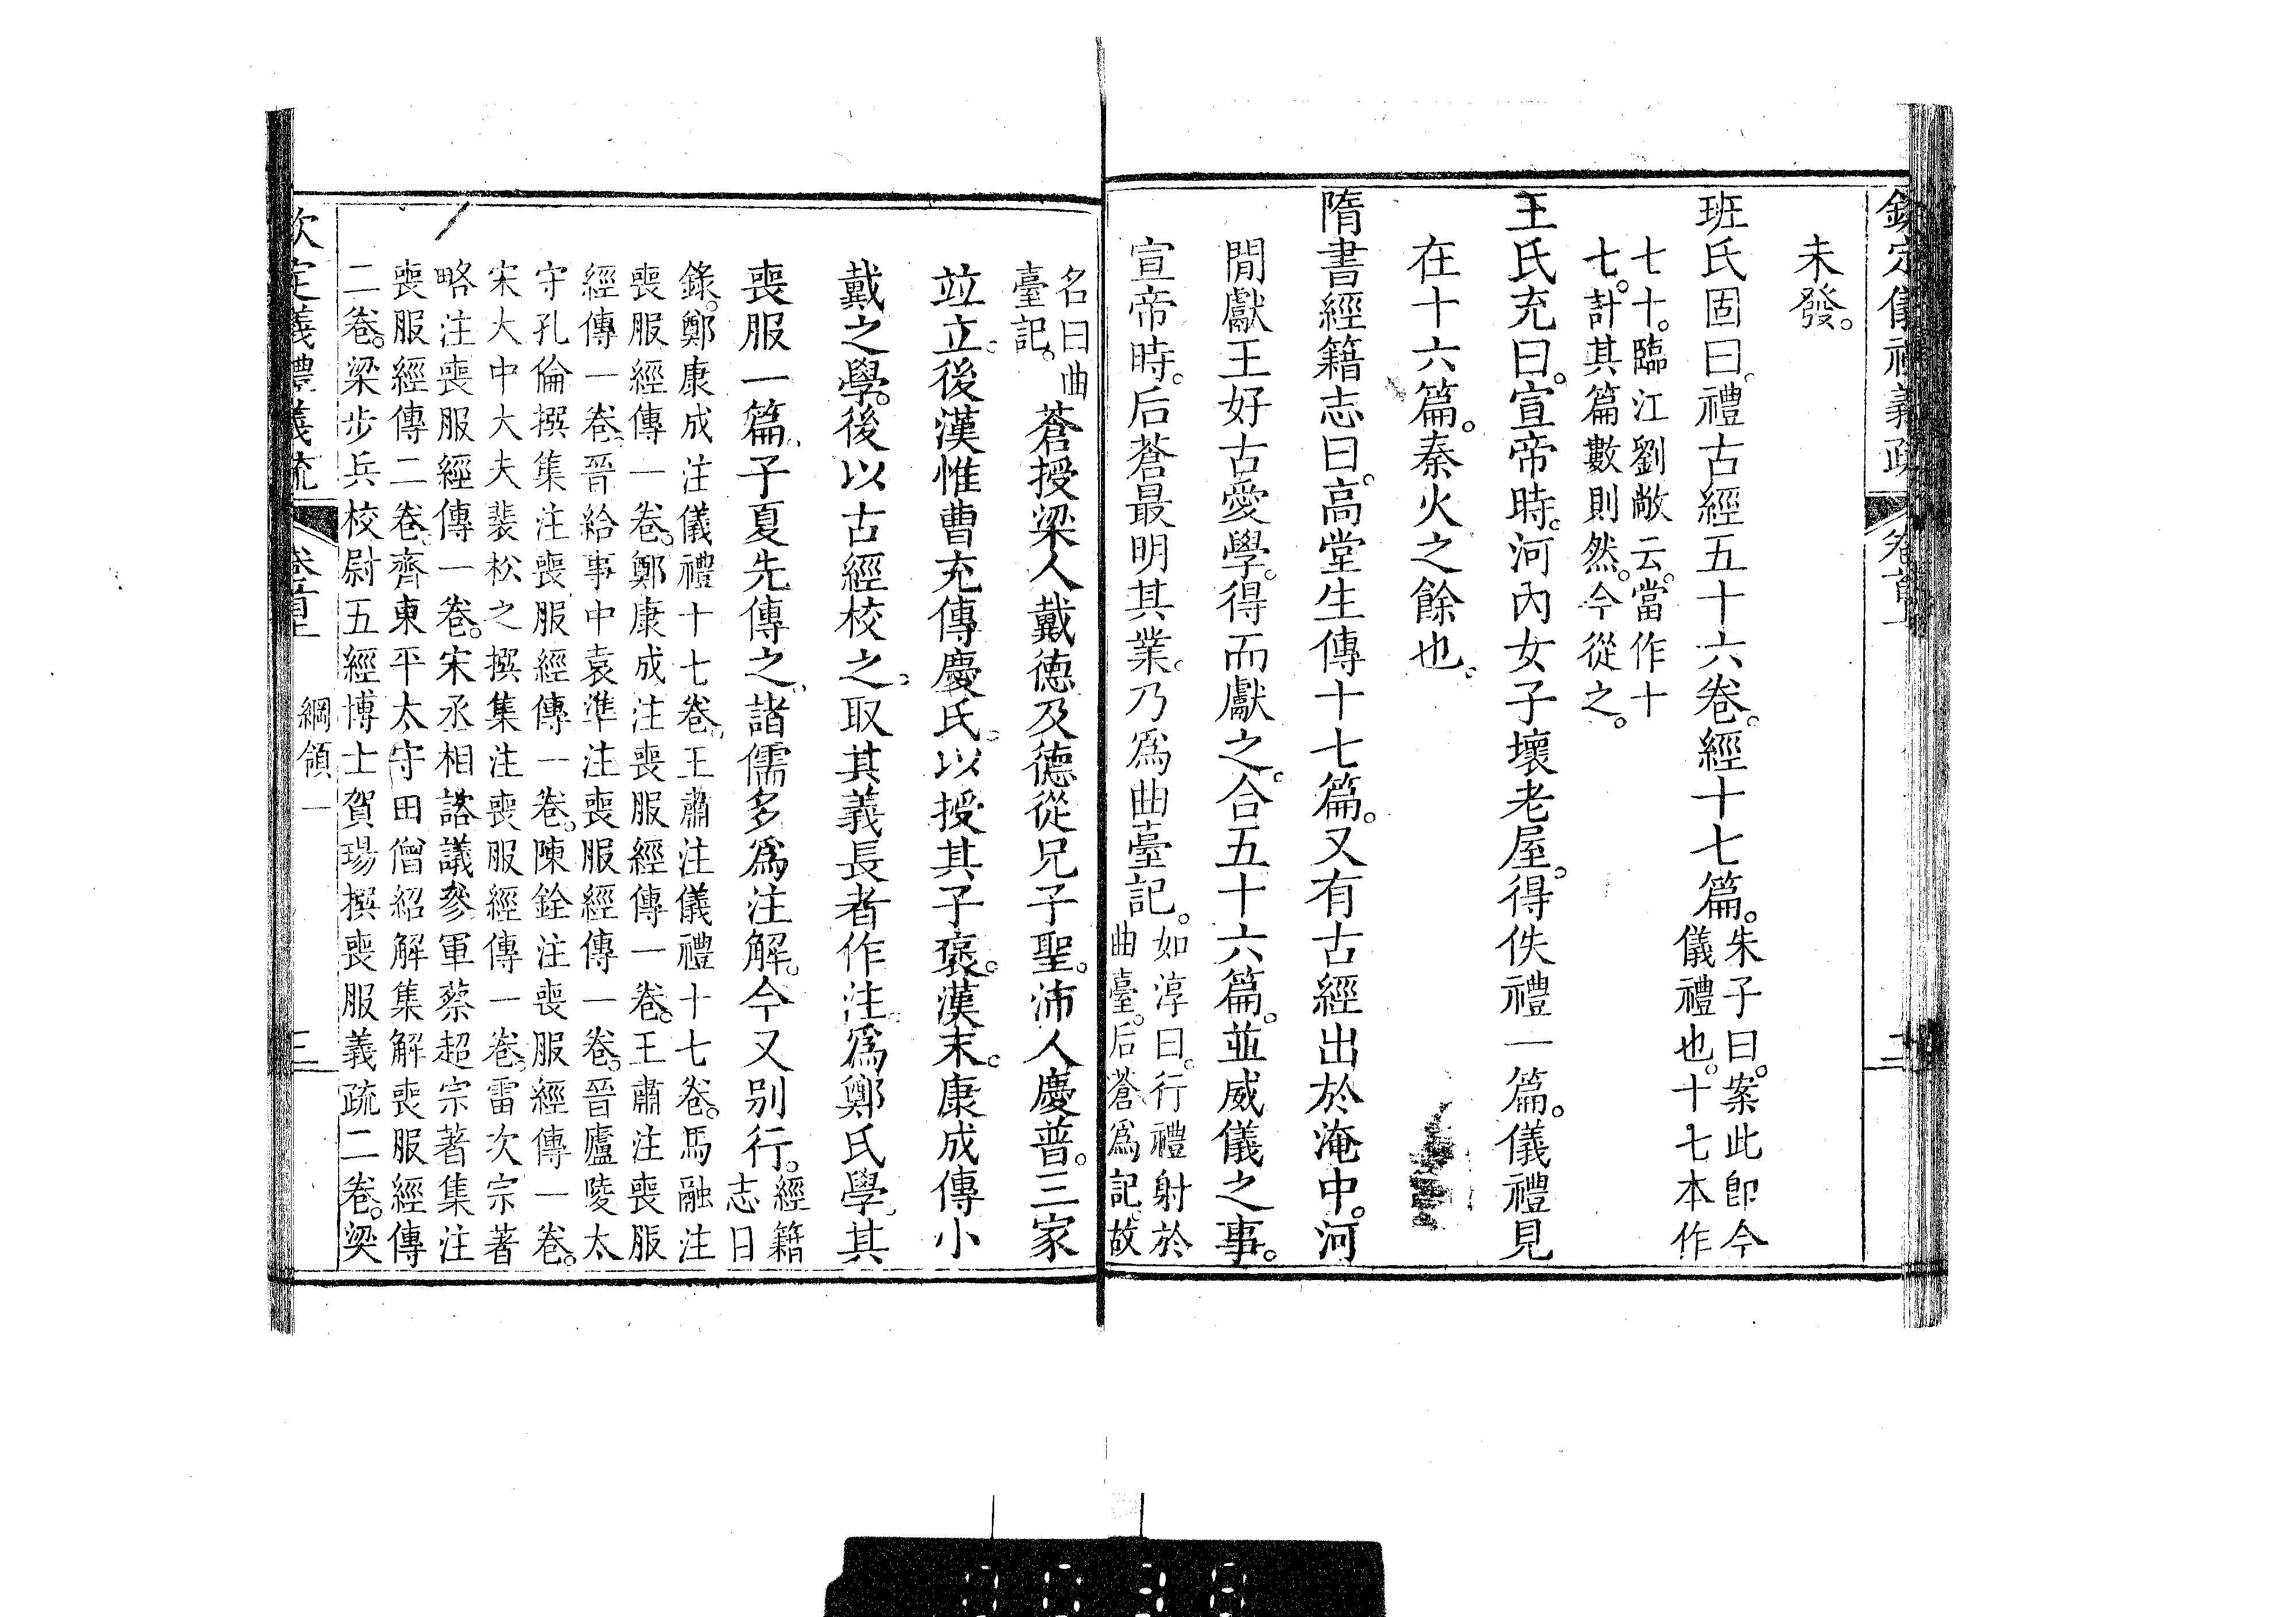 欽定儀禮義疏 卷首上 二
未發。
班氏固曰。禮古經五十六卷。經十七篇。朱子曰。案此卽今
儀禮也。十七本作
七十。臨江劉敞云。當作十
七。計其篇數則然。今從之。
王氏充曰。宣帝時。河內女子壞老屋。得佚禮一篇。儀禮見
在十六篇。秦火之餘也。
隋書經籍志曰。高堂生傳十七篇。又有古經出於淹中。河
閒獻王好古愛學。得而獻之。合五十六篇。並威儀之事。
宣帝時。后蒼最明其業。乃爲曲臺記。如淳曰。行禮射於
曲臺。后蒼爲記。故
名曰曲
臺記。
蒼授梁人戴德及德從兄子聖。沛人慶普。三家
竝立。後漢惟曹充傳慶氏。以授其子褒。漢末。康成傳小
戴之學。後以古經校之。取其義長者作注。爲鄭氏學。其
喪服一篇。子夏先傳之。諸儒多爲注解。今又別行。經籍
志曰
錄。鄭康成注儀禮十七卷。王肅注儀禮十七卷。馬融注
喪服經傳一卷。鄭康成注喪服經傳一卷。王肅注喪服
經傳一卷。晉給事中袁準注喪服經傳一卷。晉廬陵太
守孔倫撰集注喪服經傳一卷。陳銓注喪服經傳一卷。
宋大中大夫裴松之撰集注喪服經傳一卷。雷次宗著
略注喪服經傳一卷。宋丞相諮議參軍蔡超宗著集注
喪服經傳二卷。齊東平太守田僧紹解集解喪服經傳
二卷。梁步兵校尉五經博士賀瑒撰喪服義疏二卷。梁
欽定義禮義疏 卷首上 綱領一 三